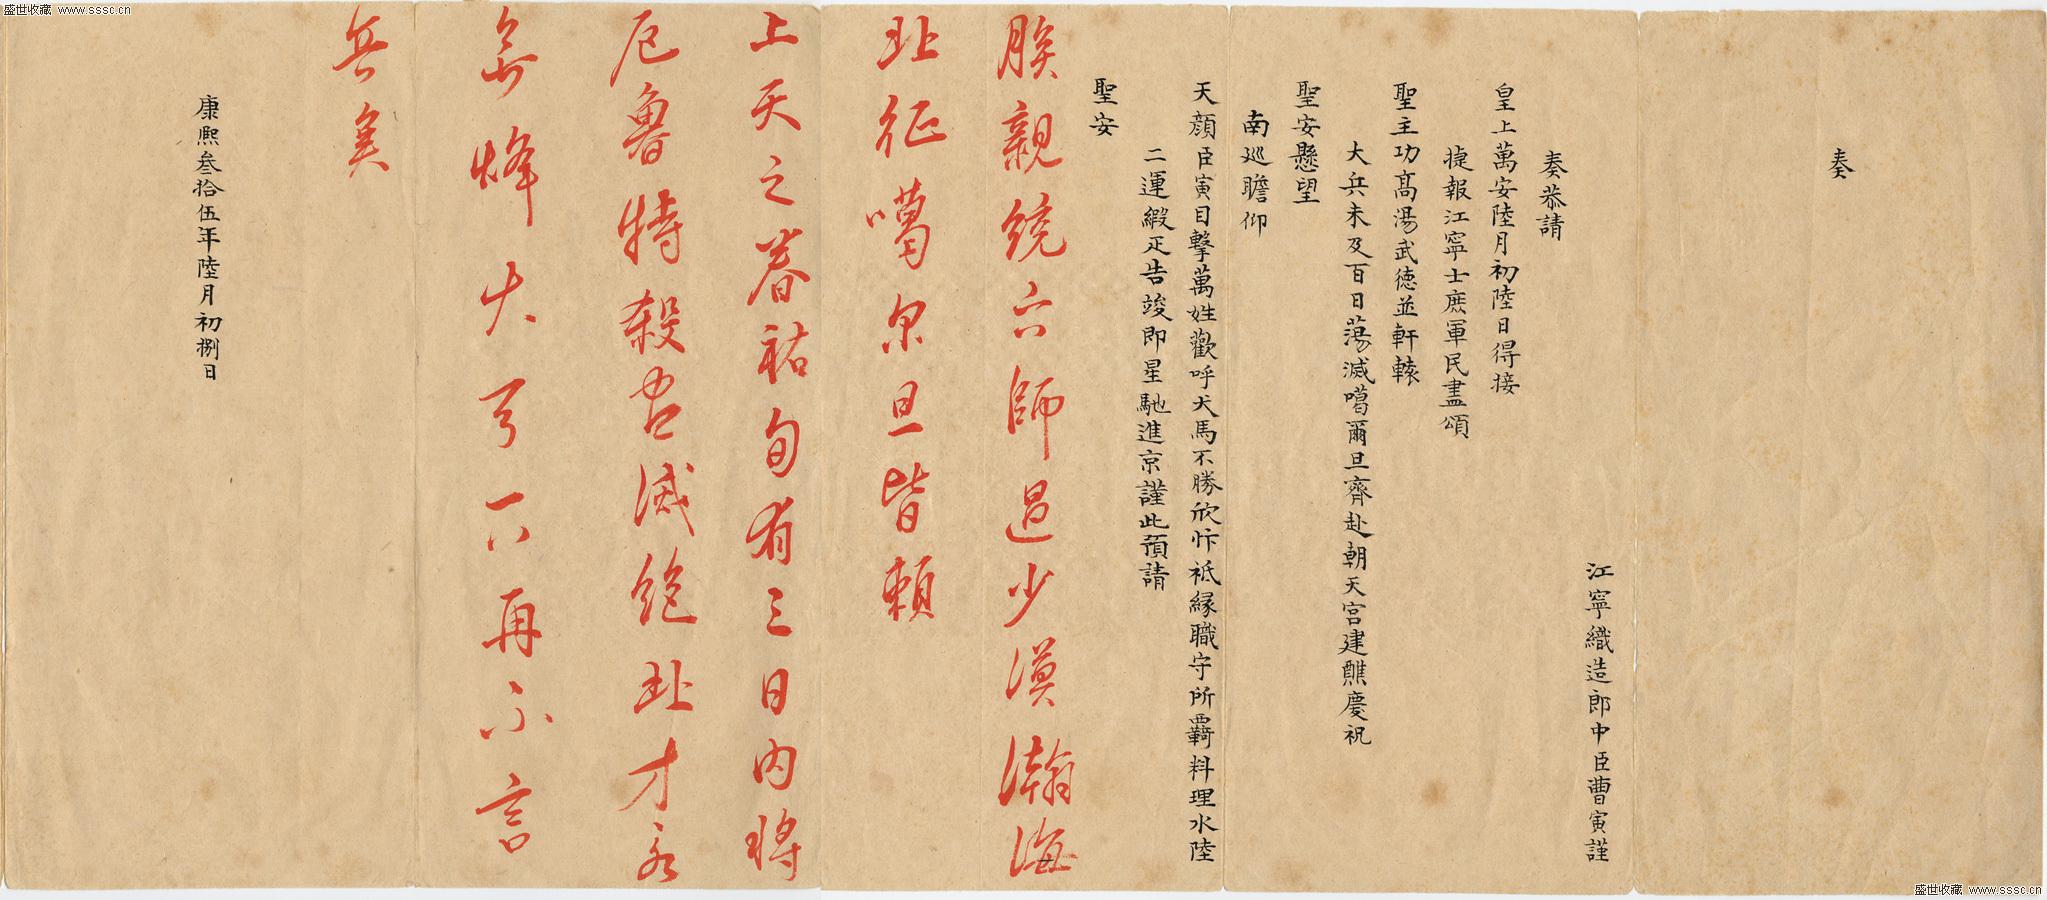 盛世收藏 www.sssc.cn
奏
江寧織造郎中臣曹寅謹
奏恭請
皇上萬安陸月初陸日得接
捷報江寧士庶軍民盡頌
聖主功高湯武德並軒轅
大兵未及百日蕩滅噶爾旦齊赴朝天宮建醮慶祝
聖安懸望
南巡瞻仰
天顔臣寅目擊萬姓歡呼犬馬不勝欣忭祇緣職守所羈料理水陸
二運緞疋告竣即星馳進京謹此預請
聖安
朕親統六師過少漠瀚海
北征噶尔旦皆賴
上天之眷祐旬有三日內將
厄魯特殺盡滅絕北才永
無烽火了一八再不言
兵矣
康熙叁拾伍年陸月初捌日
盛世收藏 www.sssc.cn